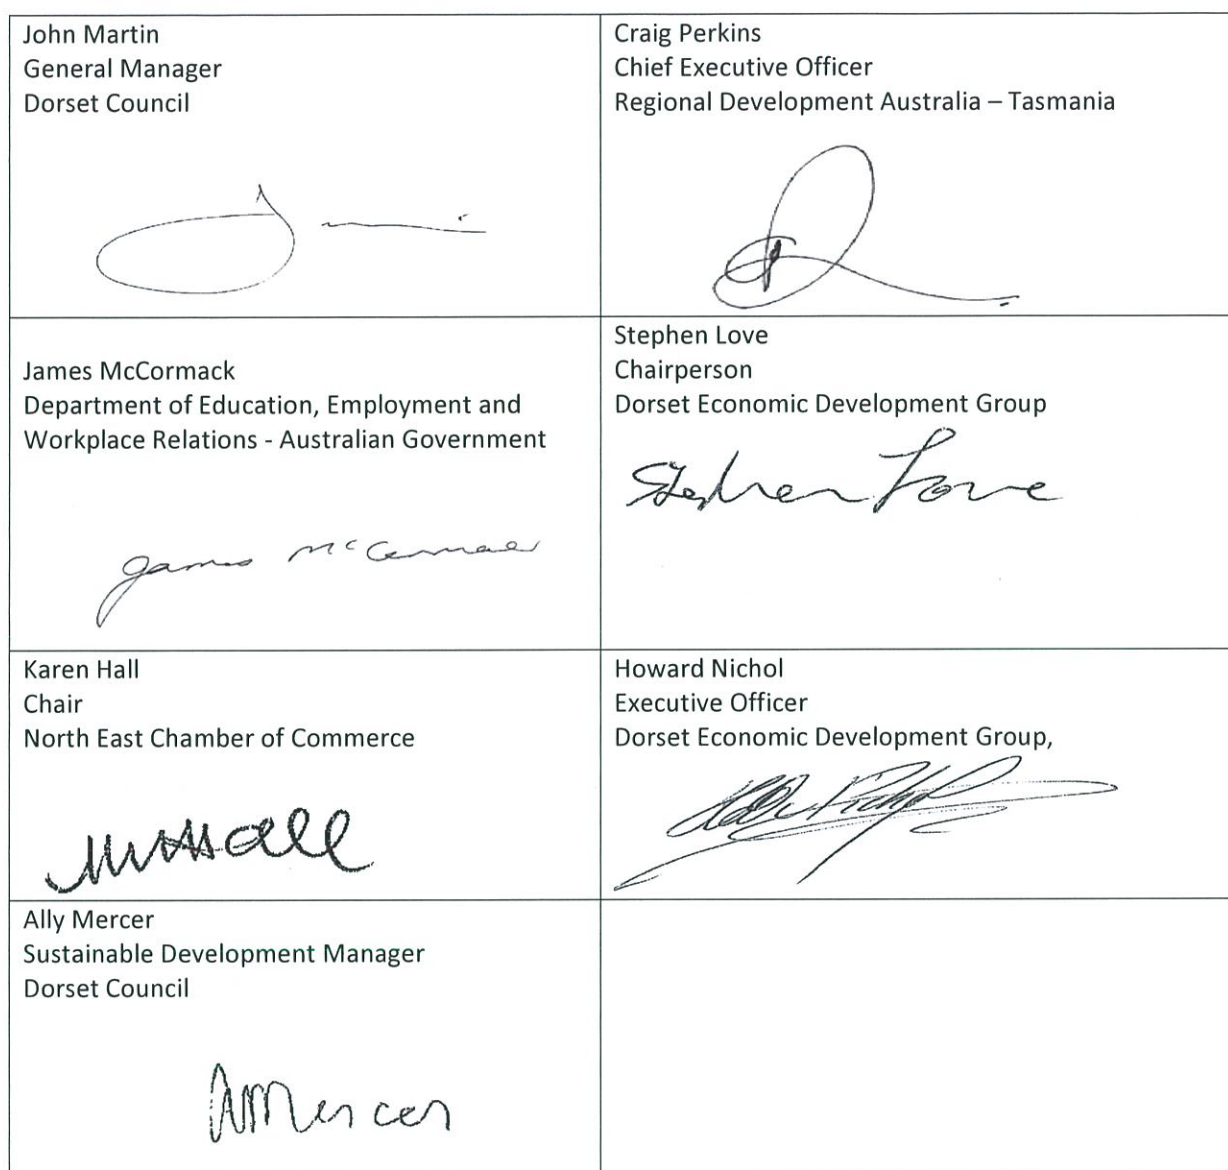 John Martin
General Manager
Dorset Council
Craig Perkins
Chief Executive Officer
Regional Development Australia – Tasmania
James McCormack
Department of Education, Employment and
Workplace Relations - Australian Government
James McCormack
Stephen Love
Chairperson
Dorset Economic Development Group
Stephen Love
Karen Hall
Chair
North East Chamber of Commerce
Howard Nichol
Executive Officer
Dorset Economic Development Group,
Ally Mercer
Sustainable Development Manager
Dorset Council
AMercer